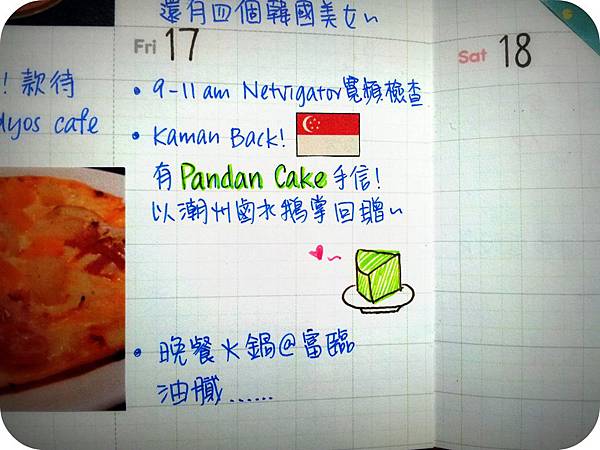 還有四個韓國美女~
Fri 17
Sat 18
! 款待
dyos cafe
• 9-11am Netvigator寬頻檢查
• Kaman Back!
有 Pandan Cake 手信!
以潮州鹵水鵝掌回贈~
• 晚餐火鍋@富臨
油膱......